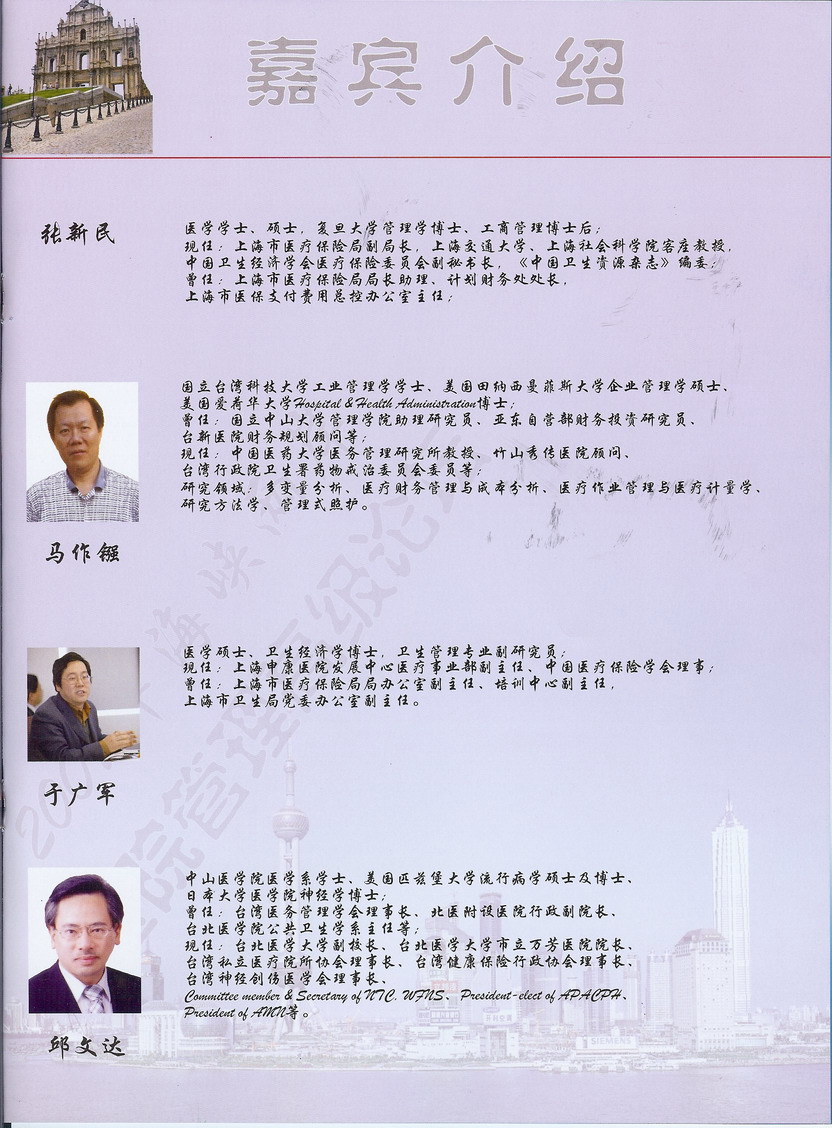 嘉宾介绍
张新民
医学学士、硕士，复旦大学管理学博士、工商管理博士后；
现任：上海市医疗保险局副局长，上海交通大学、上海社会科学院客座教授，
中国卫生经济学会医疗保险委员会副秘书长，《中国卫生资源杂志》编委；
曾任：上海市医疗保险局局长助理、计划财务处处长，
上海市医保支付费用总控办公室主任；
国立台湾科技大学工业管理学学士、美国田纳西曼菲斯大学企业管理学硕士、
美国爱荷华大学Hospital & Health Administration博士；
曾任：国立中山大学管理学院助理研究员、亚东自营部财务投资研究员、
台新医院财务规划顾问等；
现任：中国医药大学医务管理研究所教授、竹山秀传医院顾问、
台湾行政院卫生署药物戒治委员会委员等；
研究领域：多变量分析、医疗财务管理与成本分析、医疗作业管理与医疗计量学、
研究方法学、管理式照护。
马作镪
医学硕士、卫生经济学博士，卫生管理专业副研究员；
现任：上海申康医院发展中心医疗事业部副主任、中国医疗保险学会理事；
曾任：上海市医疗保险局局办公室副主任、培训中心副主任，
上海市卫生局党委办公室副主任。
于广军
中山医学院医学系学士、美国匹兹堡大学流行病学硕士及博士、
日本大学医学院神经学博士；
曾任：台湾医务管理学会理事长、北医附设医院行政副院长、
台北医学院公共卫生学系主任等；
现任：台北医学大学副校长、台北医学大学市立万芳医院院长、
台湾私立医疗院所协会理事长、台湾健康保险行政协会理事长、
台湾神经创伤医学会理事长、
Committee member & Secretary of NTC. WFNS、President-elect of APACPH、
President of AMN等。
邱文达
SIEMENS